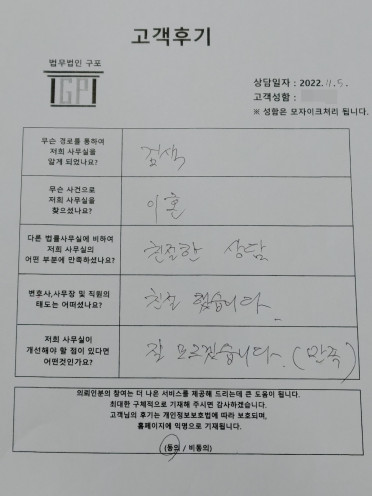 고객후기
법무법인 구포
GP
상담일자 : 2022. 11. 5.
고객성함 :
※ 성함은 모자이크처리 됩니다.
무슨 경로를 통하여
저희 사무실을
알게 되었나요?
검색
무슨 사건으로
저희 사무실을
찾으셨나요?
이혼
다른 법률사무실에 비하여
저희 사무실의
어떤 부분에 만족하셨나요?
친절한 상담
변호사,사무장 및 직원의
태도는 어떠셨나요?
친절 했습니다.
저희 사무실이
개선해야 할 점이 있다면
어떤것인가요?
잘 모르겠습니다. (만족)
의뢰인분의 참여는 더 나은 서비스를 제공해 드리는데 큰 도움이 됩니다.
최대한 구체적으로 기재해 주시면 감사하겠습니다.
고객님의 후기는 개인정보보호법에 따라 보호되며,
홈페이지에 익명으로 기재됩니다.
(동의 / 비동의)